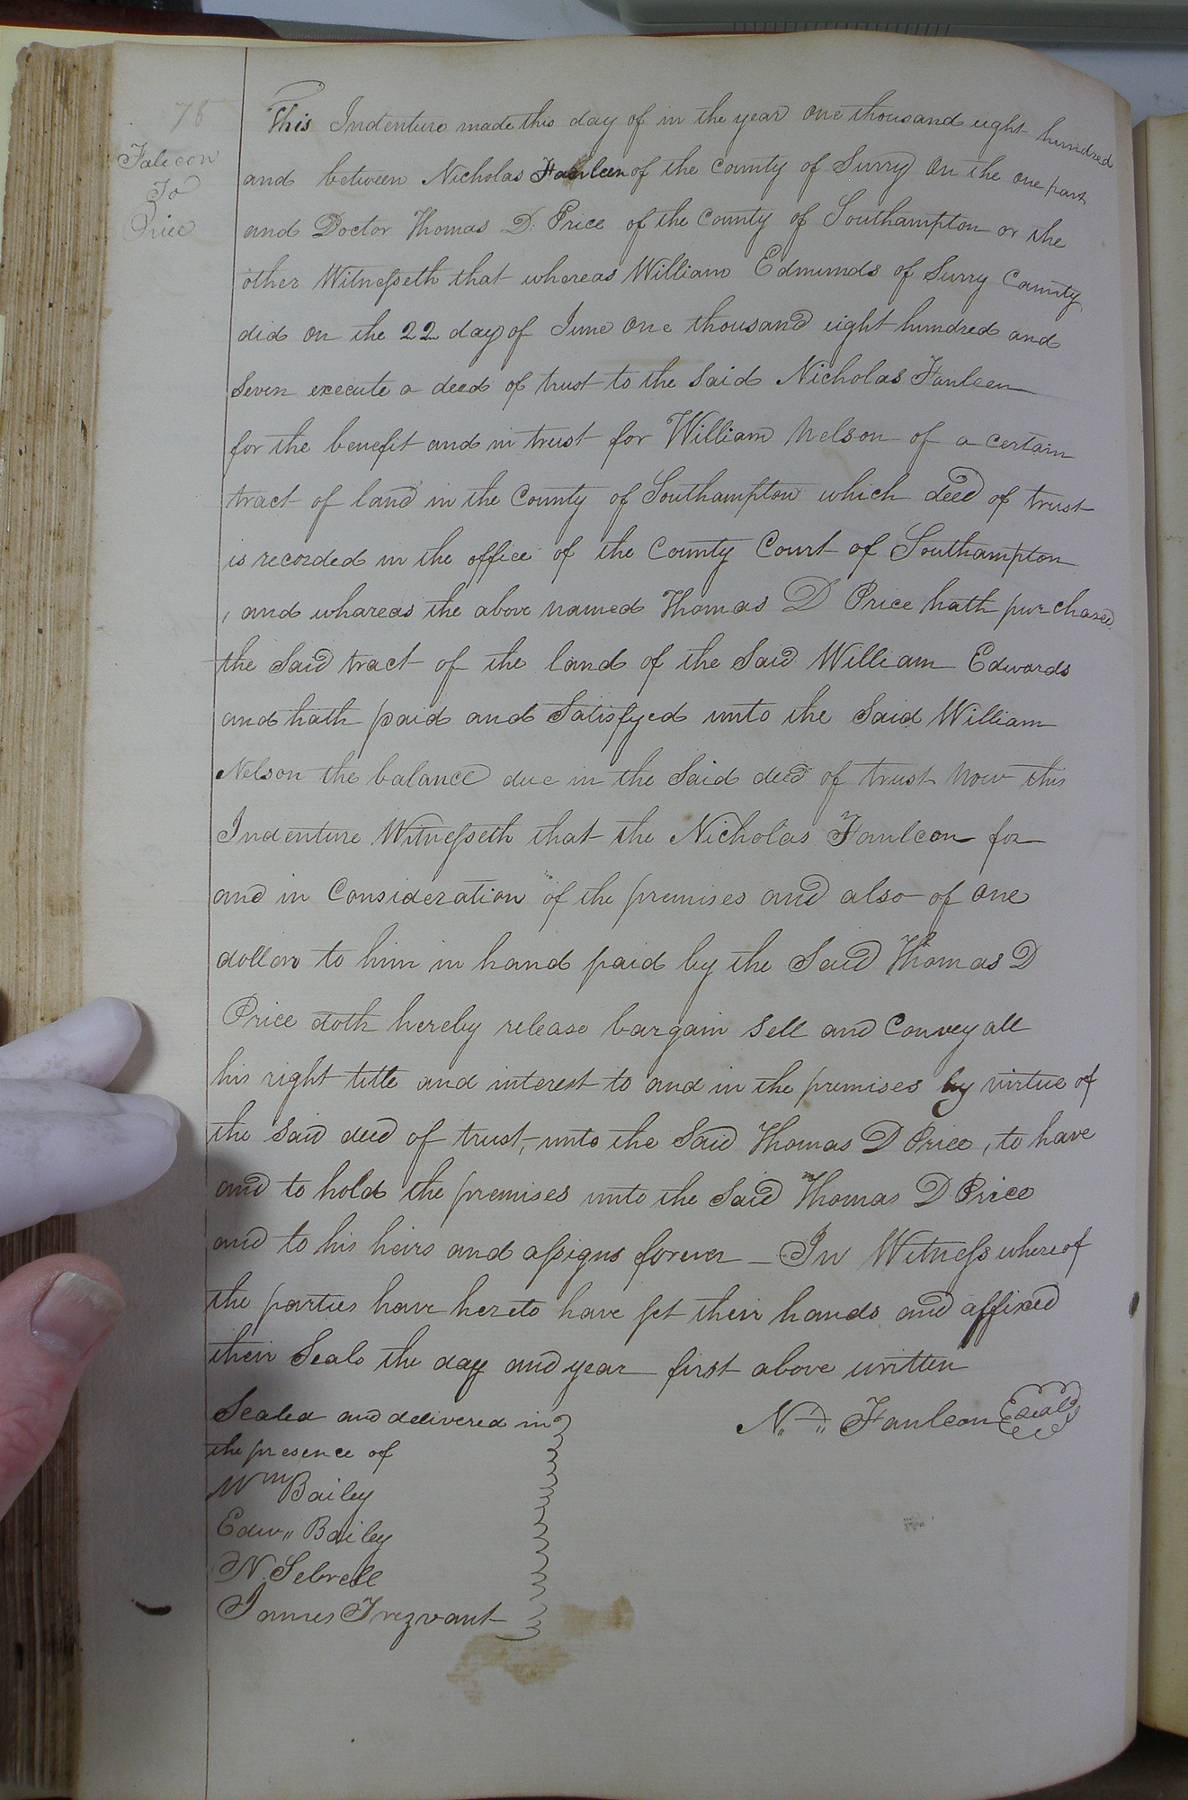 78
Falicon
To
Price
This Indenture made this day of in the year One thousand eight hundred
and between Nicholas Faulcon of the county of Surry On the one part
and Doctor Thomas D. Price of the County of Southampton or the
other Witnesseth that whereas William Edmunds of Surry County
did on the 22 day of June One thousand eight hundred and
Seven execute a deed of trust to the said Nicholas Faulcon
for the benefit and in trust for William Nelson of a certain
tract of land in the County of Southampton which deed of trust
is recorded in the office of the County Court of Southampton
, and whareas the above named Thomas D Price hath purchased
the Said tract of the land of the Said William Edwards
and hath paid and Satisfyed unto the Said William
Nelson the balance due in the Said deed of trust Now this
Indenture Witnesseth that the Nicholas Faulcon for
and in Consideration of the premises and also of One
dollar to him in hand paid by the Said Thomas D
Price doth hereby release bargain Sell and Convey all
his right title and interest to and in the premises by virtue of
the Said deed of trust, unto the Said Thomas D Price, to have
and to hold the premises unto the Said Thomas D Price
and to his heirs and assigns forever – In Witness whereof
the parties have hereto have set their hands and affixed
their Seals the day and year first above written
Sealed and delivered in N. Faulcon Seal
the presence of
Wm Bailey
Edw,, Bailey
N. Sebrell
James Trezvant